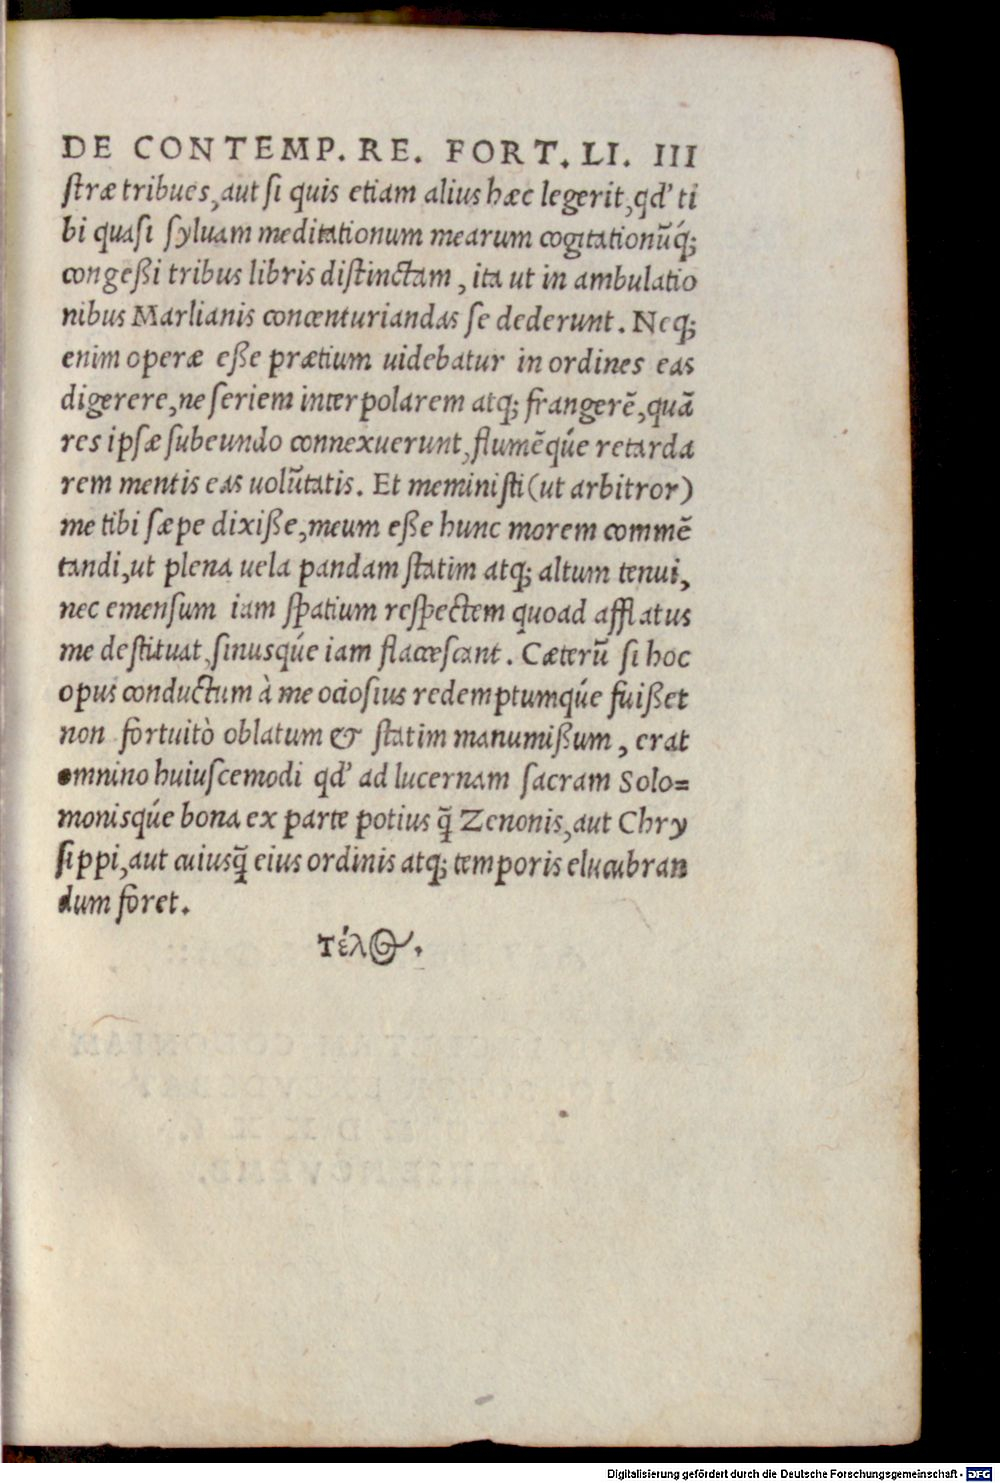 DE CONTEMP. RE. FORT. LI. III
ſtræ tribues, aut ſi quis etiam alius hæc legerit, qđ ti
bi quaſi ſyluam meditationum mearum cogitationũq́;
congeßi tribus libris diſtinctam, ita ut in ambulatio
nibus Marlianis concenturiandas ſe dederunt. Neq;
enim operæ eße prætium uidebatur in ordines eas
digerere, ne ſeriem interpolarem atq; frangerẽ, quã
res ipſæ ſubeundo connexuerunt, flumẽq́ue retarda
rem mentis eas uolũtatis. Et meminiſti (ut arbitror)
me tibi ſæpe dixiße, meum eße hunc morem commẽ
tandi, ut plena uela pandam ſtatim atq; altum tenui,
nec emenſum iam ſpatium reſpectem quoad afflatus
me deſtituat, ſinusq́ue iam flacceſcant. Cæterũ ſi hoc
opus conductum à me ocioſius redemptumq́ue fuißet
non fortuitò oblatum & ſtatim manumißum, erat
omnino huiuſcemodi qđ ad lucernam ſacram Solo=
monisq́ue bona ex parte potius q̃ Zenonis, aut Chry
ſippi, aut cuiusq̃ eius ordinis atq; temporis elucubran
dum foret.
Τέλος.
Digitalisierung gefördert durch die Deutsche Forschungsgemeinschaft - DFG